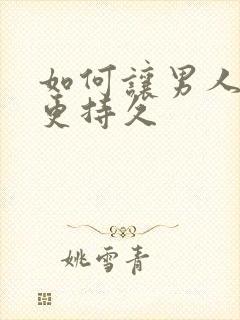 如何讓男人
更持久
姚雪青